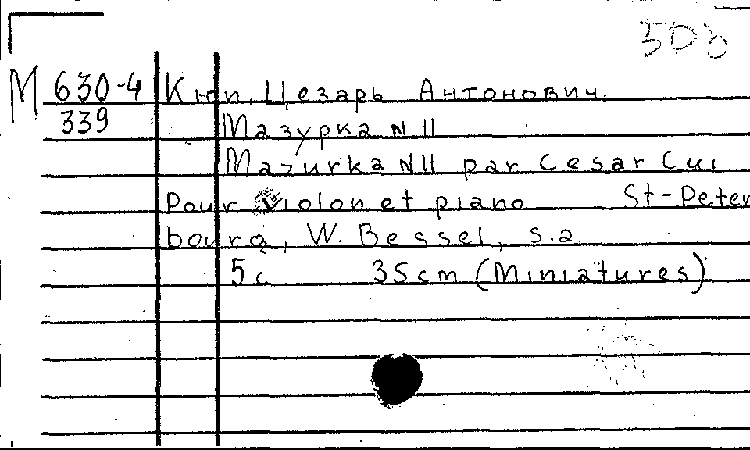 503
М 630-4 Кюи, Цезарь Антонович.
339 Мазурка N II
Mazurka N II par Cesar Cui
Pour violon et piano St-Peter
bourg, W. Bessel, s.a
5 c 35 cm (Miniatures)